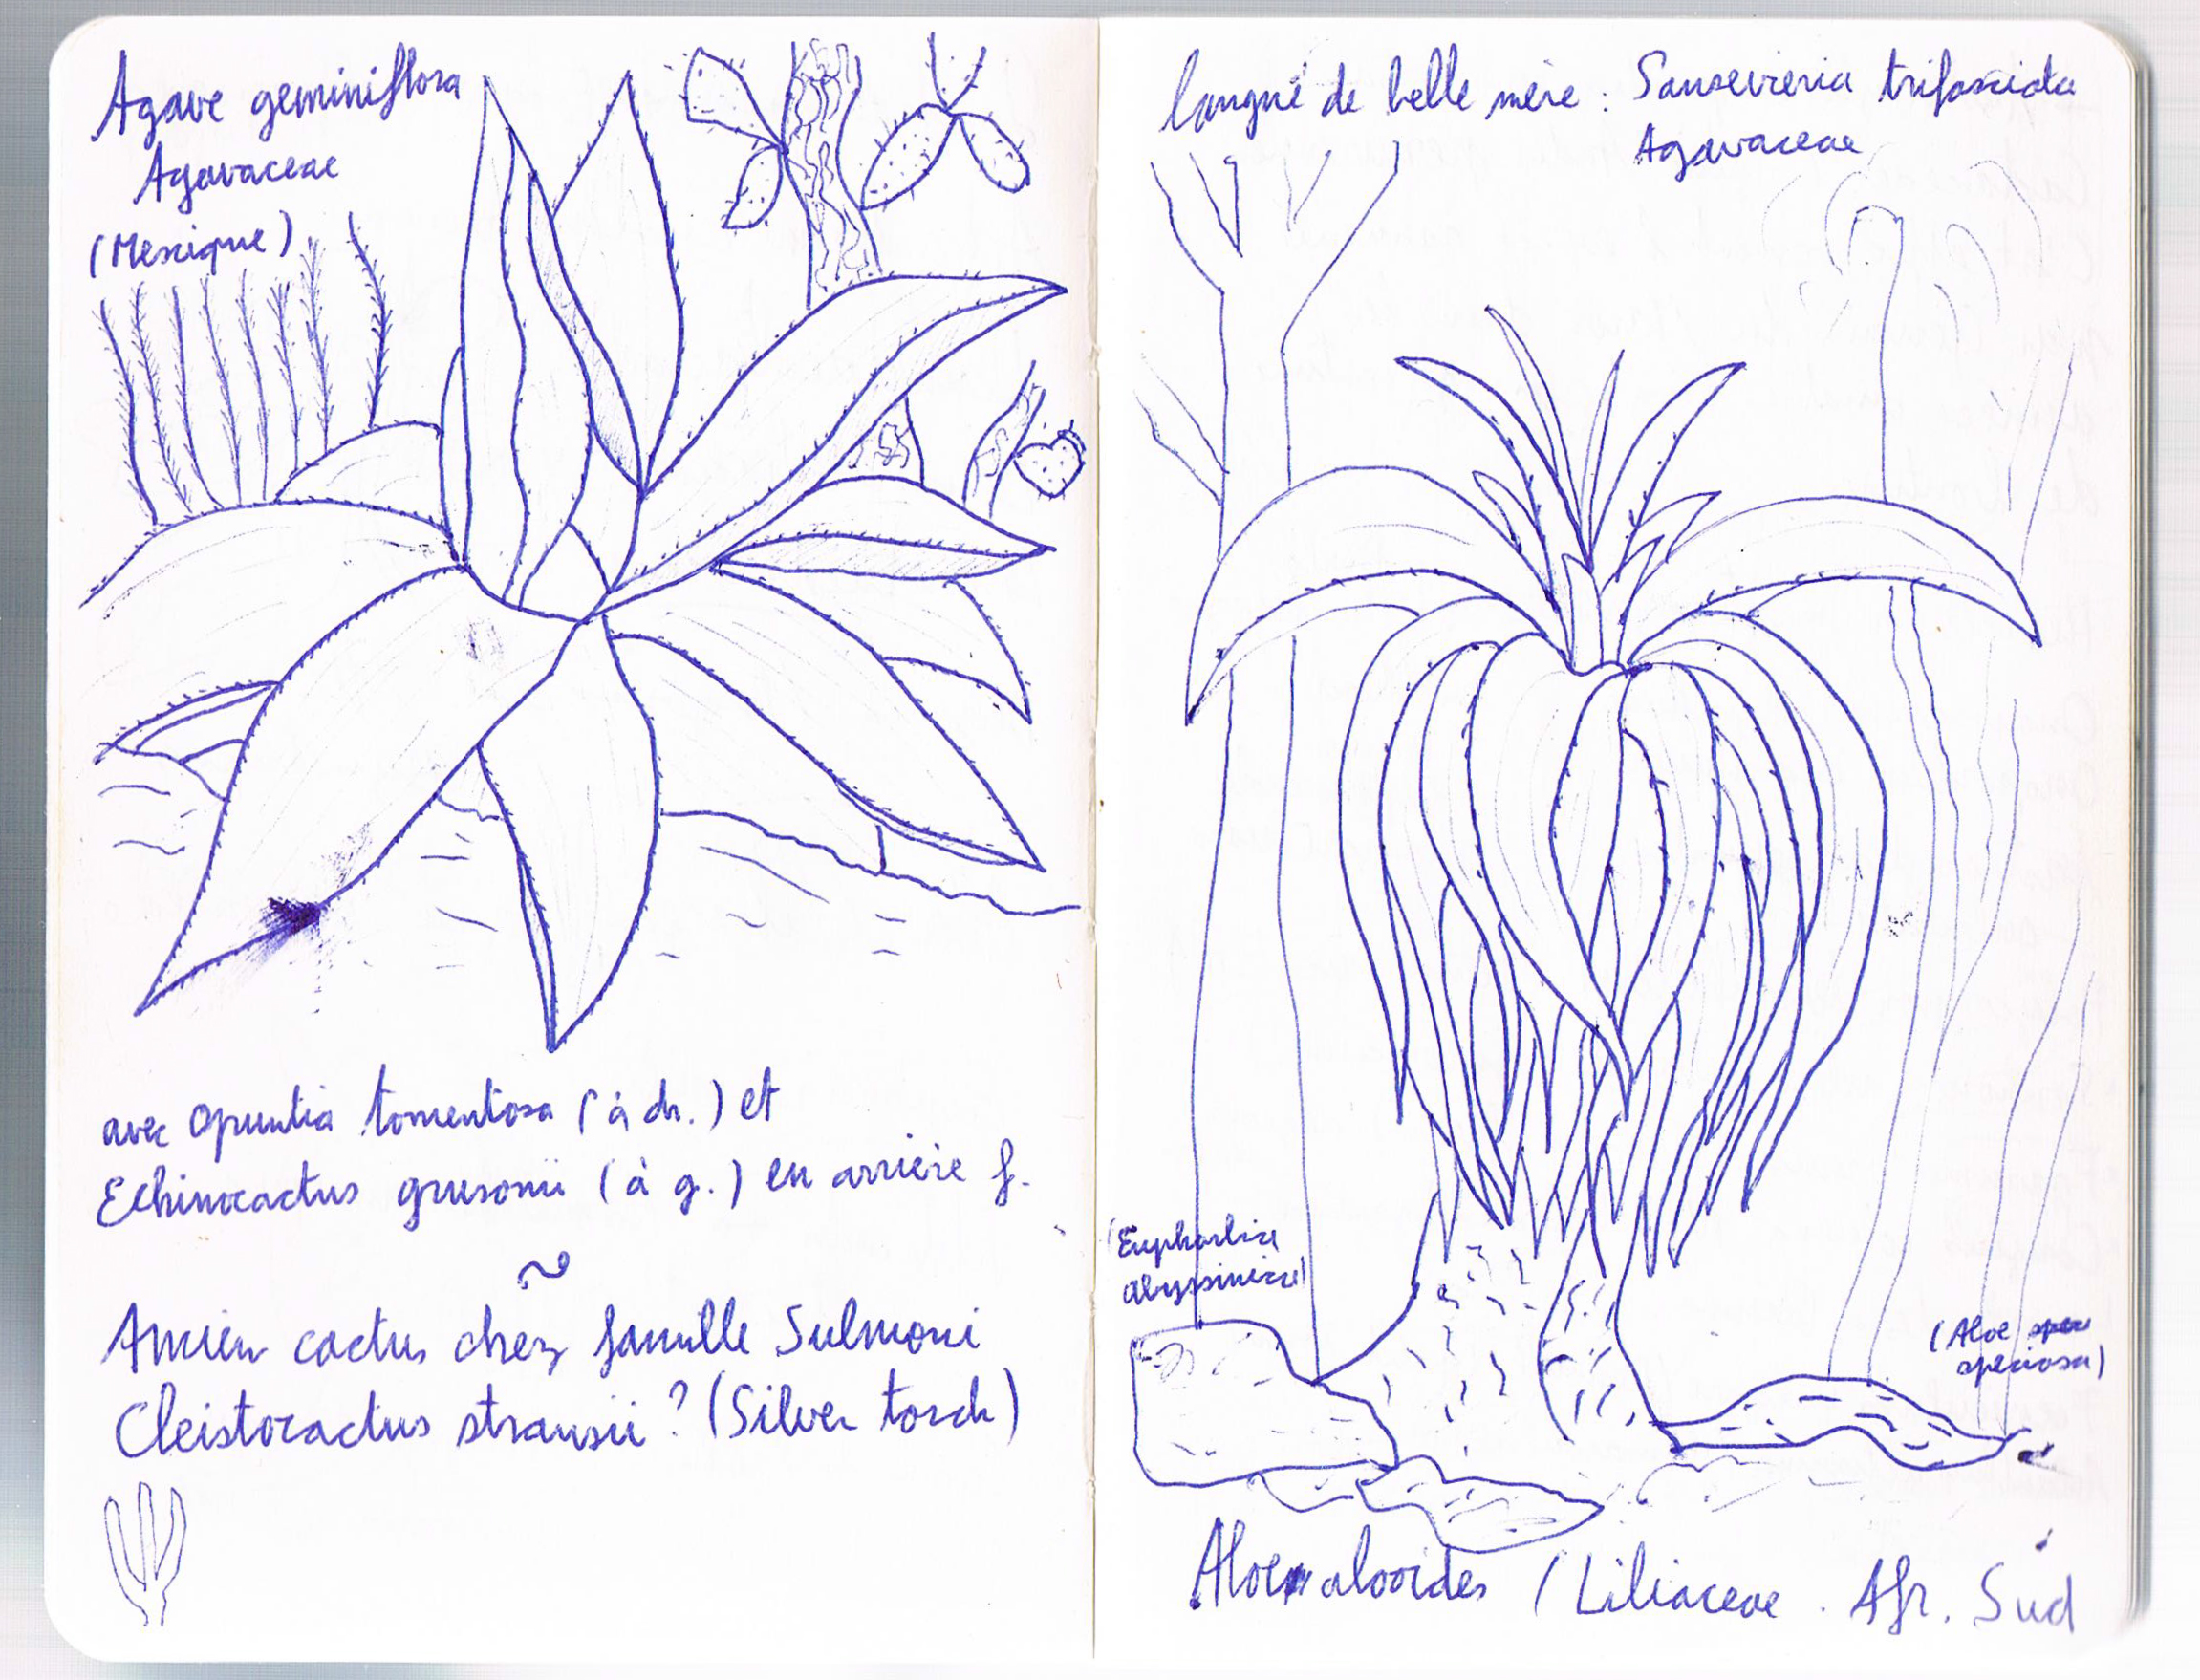 Agave geminiflora
Agavaceae
(Mexique)
avec Opuntia tomentosa (à dr.) et
Echinocactus grusonii (à g.) en arrière f.
Ancien cactus chez famille Sulmoni
Cleistocactus strausii ? (Silver torch)
langue de belle mère : Sansevieria trifasciata
Agavaceae
(Euphorbia
abyssinica)
(Aloe
speciosa)
Aloe alooides (Liliaceae . Afr. Sud